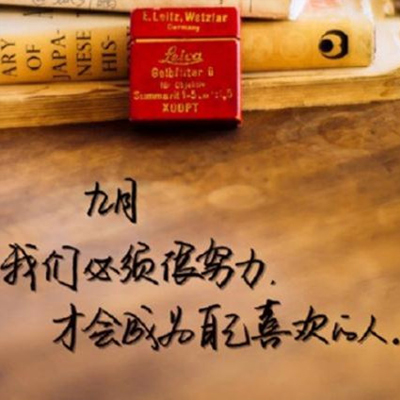 E. Leitz, Wetzlar
Germany
Leica
Gelbfilter 0
für Objektiv
XOOPT
ARY
OF
JAPA-
NESE
HIS-
九月
我们必须很努力.
才会成为自己喜欢的人.